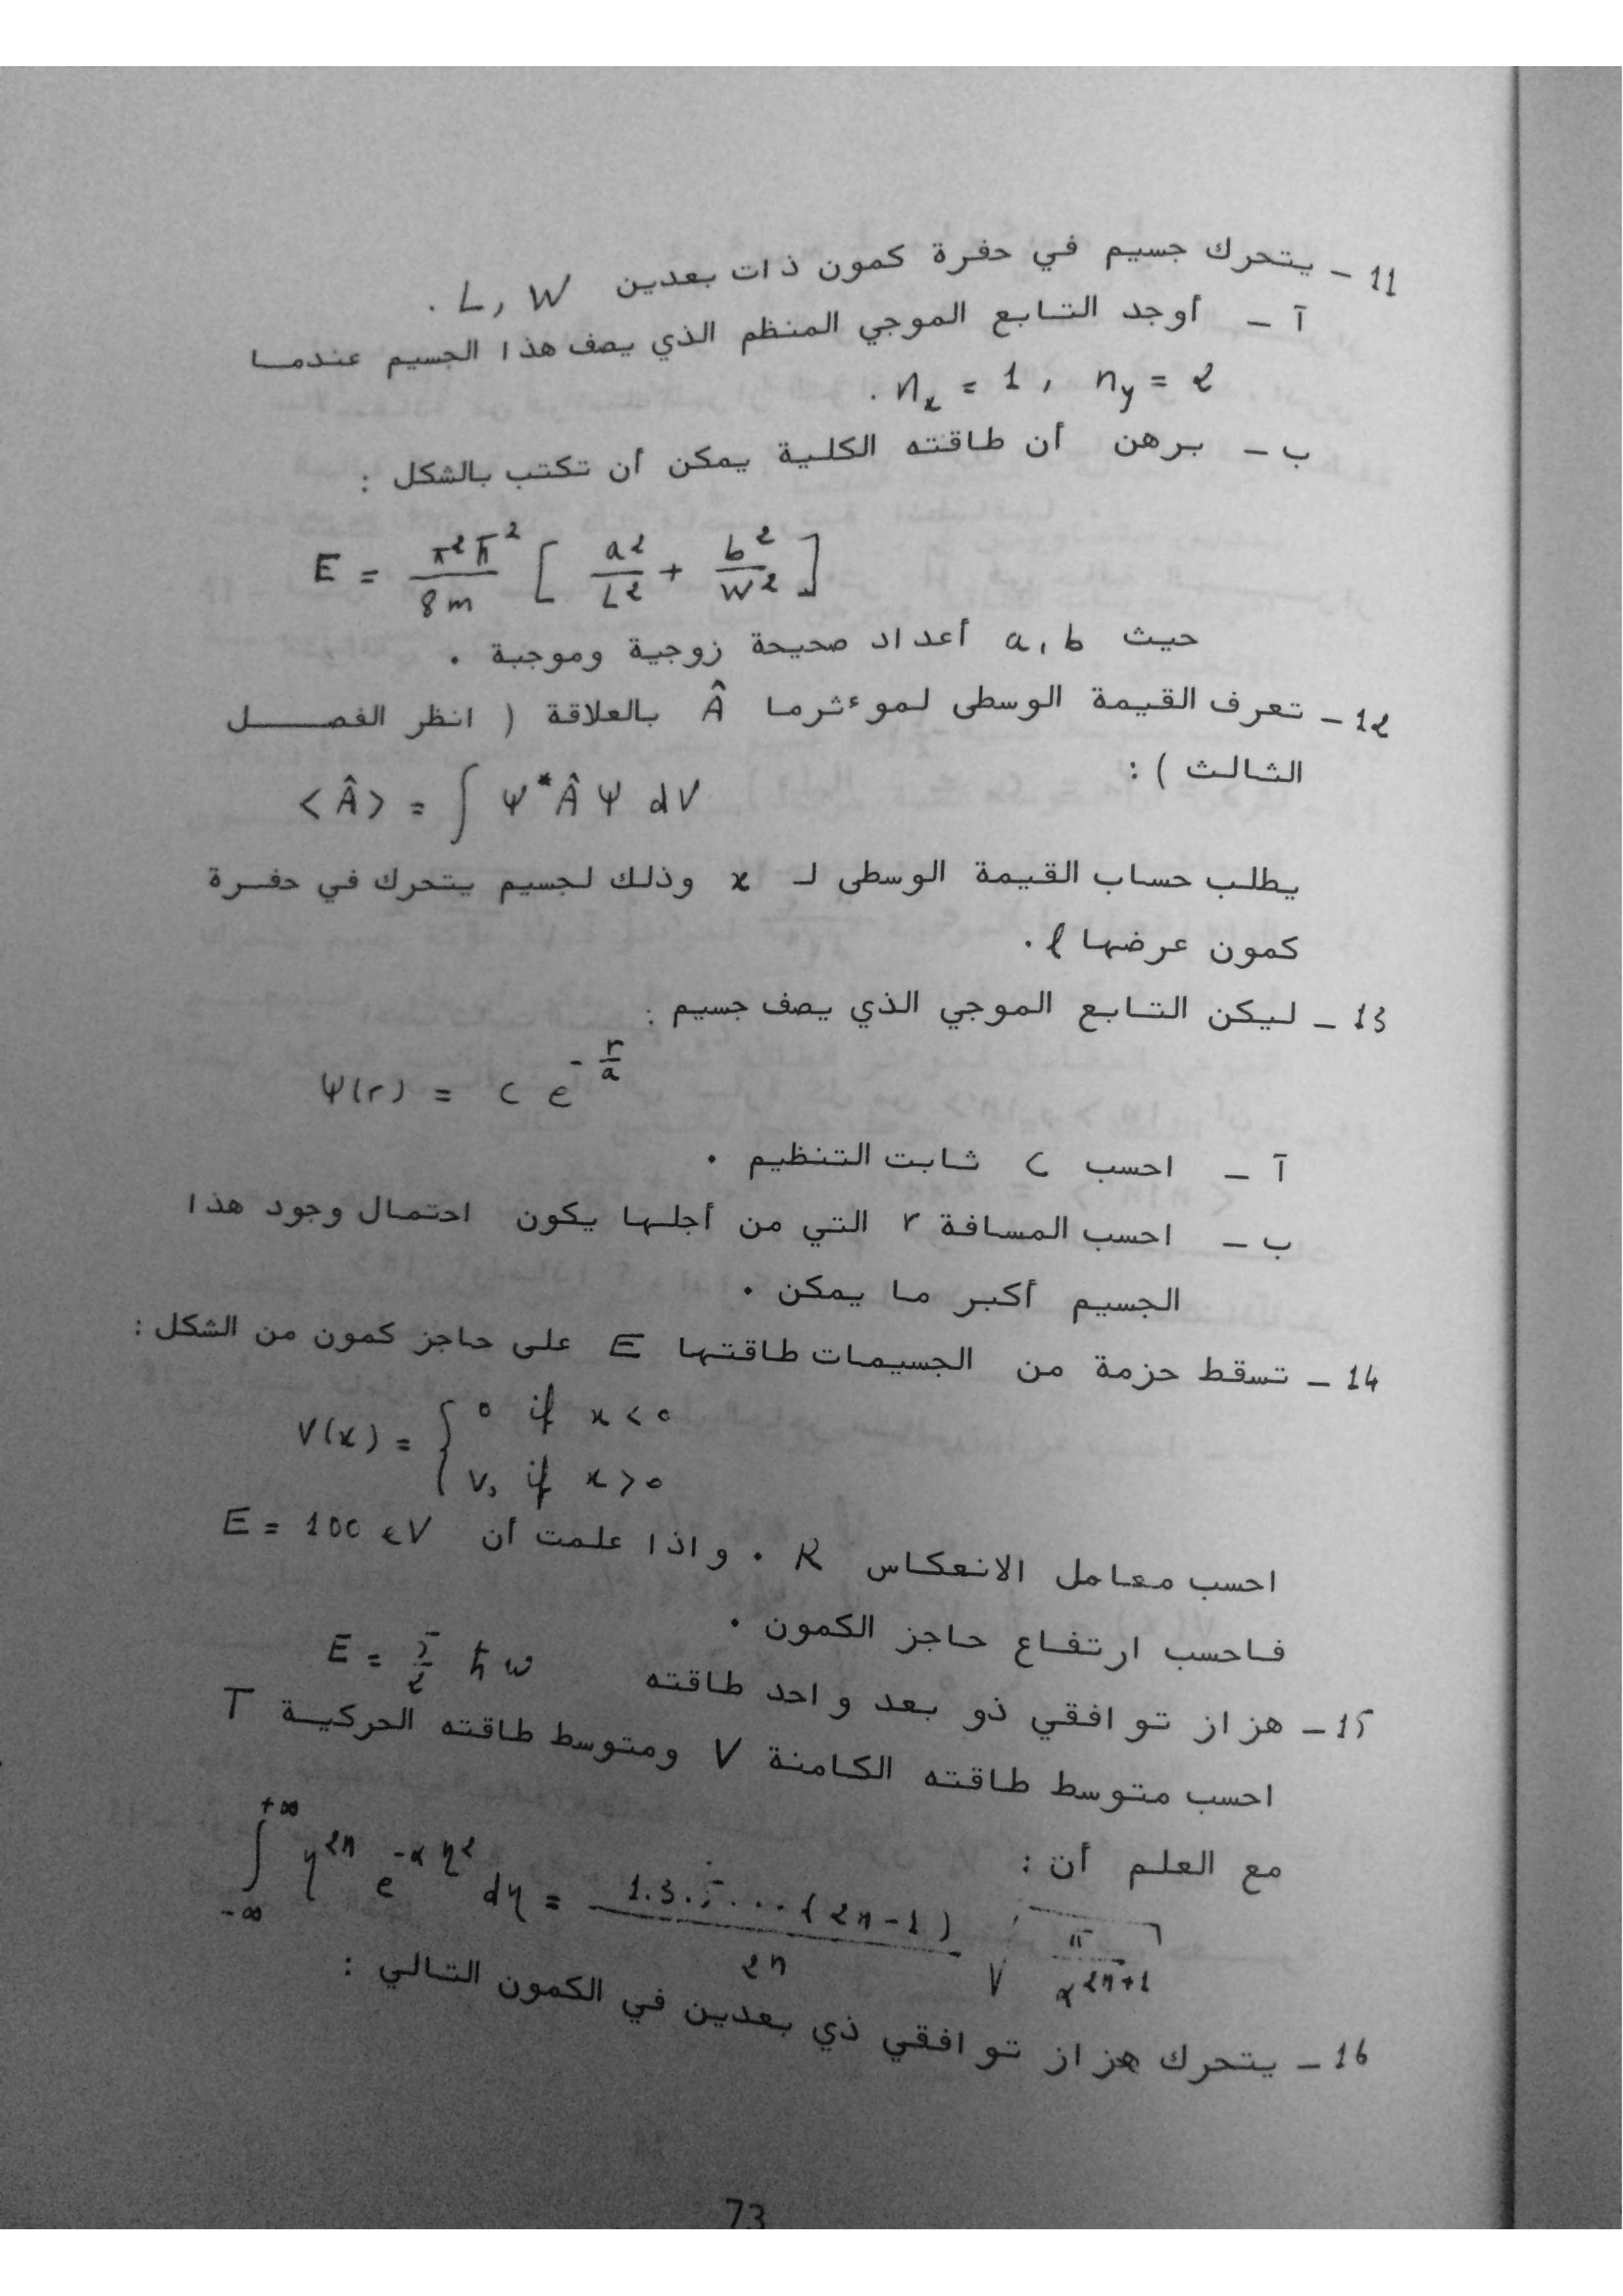 11 - يتحرك جسيم في حفرة كمون ذات بعدين L, W .
آ - أوجد التابع الموجي المنظم الذي يصف هذا الجسيم عندما
. n_x = 1 , n_y = 2
ب - برهن أن طاقته الكلية يمكن أن تكتب بالشكل :
E = π²ħ² / 8m [ a² / L² + b² / W² ]
حيث a, b أعداد صحيحة زوجية وموجبة .
12 - تعرف القيمة الوسطى لموءثرما Â بالعلاقة ( انظر الفصل
الثالث ) :
<Â> = ∫ Ψ* Â Ψ dV
يطلب حساب القيمة الوسطى لـ x وذلك لجسيم يتحرك في حفرة
كمون عرضها ℓ .
13 - ليكن التابع الموجي الذي يصف جسيم :
Ψ(r) = C e^{-r/a}
آ - احسب C ثابت التنظيم .
ب - احسب المسافة r التي من أجلها يكون احتمال وجود هذا
الجسيم أكبر ما يمكن .
14 - تسقط حزمة من الجسيمات طاقتها E على حاجز كمون من الشكل :
V(x) = { 0 if x < 0
V₀ if x > 0
احسب معامل الانعكاس R . واذا علمت أن E = 100 eV
فاحسب ارتفاع حاجز الكمون .
15 - هزاز توافقي ذو بعد واحد طاقته E = 5/2 ħω
احسب متوسط طاقته الكامنة V ومتوسط طاقته الحركية T
مع العلم أن :
∫_{-∞}^{+∞} η^{2n} e^{-αη²} dη = 1.3.5...(2n-1) / 2n √(π / α^{2n+1})
16 - يتحرك هزاز توافقي ذي بعدين في الكمون التالي :
73